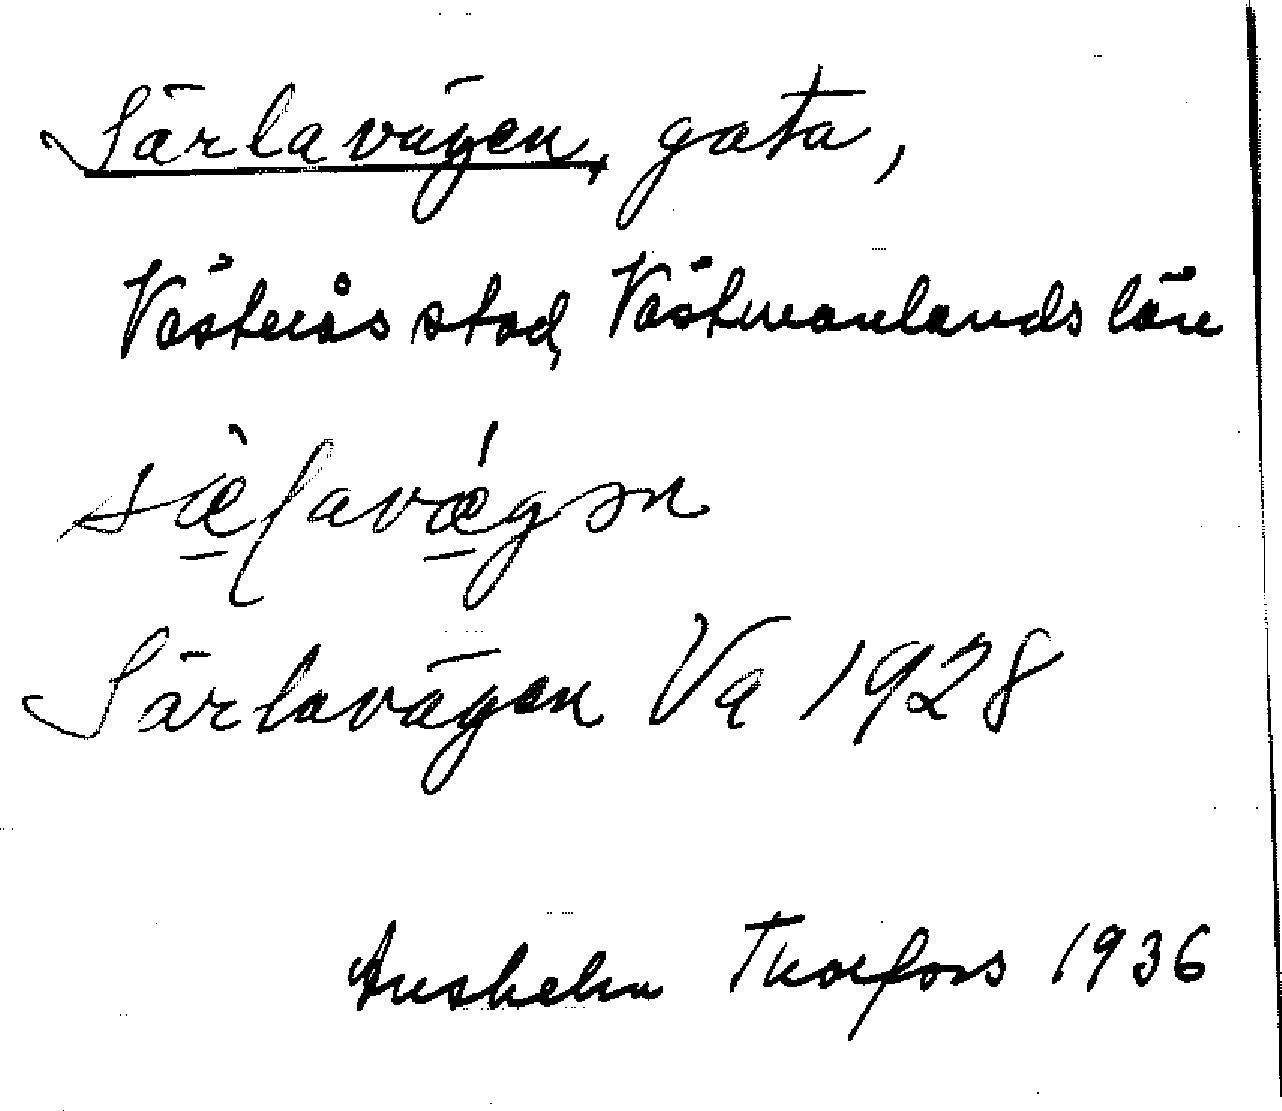 Särlavägen, gata,
Västerås stad, Västmanlands län
sæ̀ɭavǽgən
Särlavägen Va 1928
Anshelm Thorfors 1936